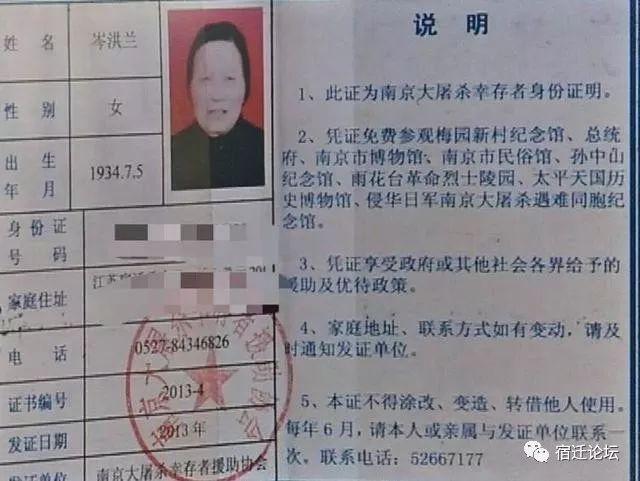 姓 名 岑洪兰
性 别 女
出 生
年 月
1934.7.5
身份证
号 码
家庭住址
电 话 0527-84346826
证书编号 2013-4
发证日期 2013年
发证单位 南京大屠杀幸存者援助协会
说 明
1、此证为南京大屠杀幸存者身份证明。
2、凭证免费参观梅园新村纪念馆、总统
府、南京市博物馆、南京市民俗馆、孙中山
纪念馆、雨花台革命烈士陵园、太平天国历
史博物馆、侵华日军南京大屠杀遇难同胞纪
念馆。
3、凭证享受政府或其他社会各界给予的
援助及优待政策。
4、家庭地址、联系方式如有变动，请及
时通知发证单位。
5、本证不得涂改、变造、转借他人使用。
每年6月，请本人或亲属与发证单位联系一
次。联系电话：52667177
宿迁论坛